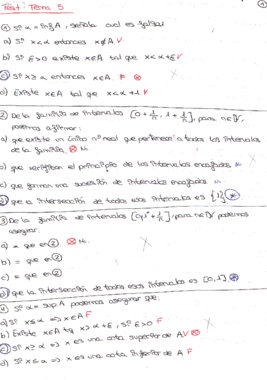 Test: Tema 5
① Si α = inf A, señala cual es falsa:
a) Si x<α entonces x∉A V
b) Si ε>0 existe x∈A tal que x<α+ε V
c) Si x≥α entonces x∈A. F
d) Existe x∈A tal que x<α+1 V
② De la familia de intervalos , para n∈N, podemos afirmar:
a) que existe un único nº real que pertenece a todos los intervalos
de la familia. No
b) que verifican el principio de los intervalos encajados. No
c) que forman una sucesión de intervalos encajados.
d) que la intersección de todos esos intervalos es {1}
③ De la familia de intervalos , para n∈N podemos
asegurar.
a) = que en ② No.
b) = que en ②
c) = que en ②
d) que la intersección de todos esos intervalos es [0,1]
④ Si α = sup A podemos asegurar que:
a) Si x≤α => x∈A F
b) Existe x∈A tq x>α+ε, Si ε>0 F
c) Si x≥α => x es una cota superior de A V
d) Si x≤α => x es una cota inferior de A F